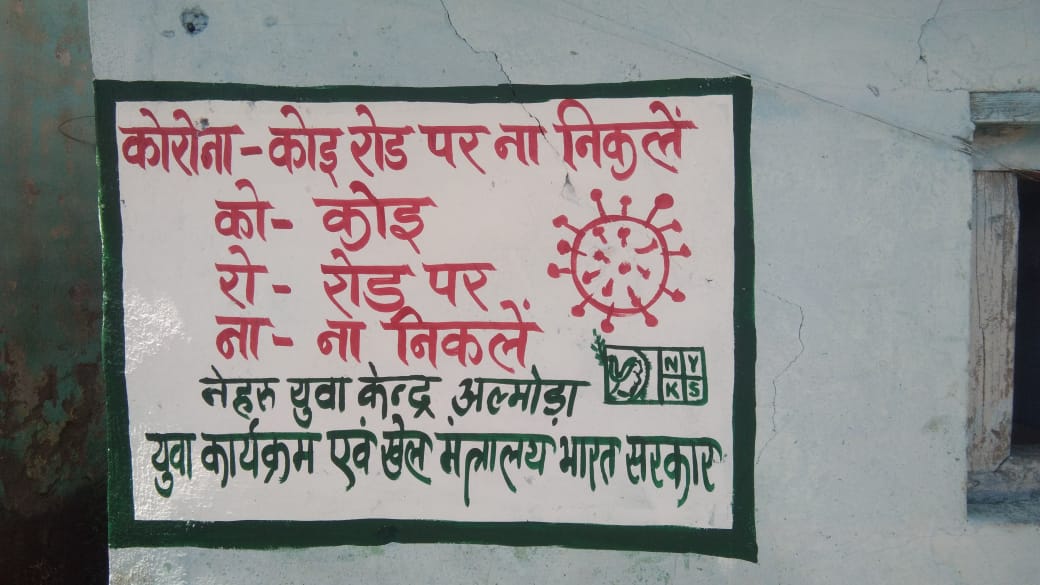 कोरोना - कोइ रोड पर ना निकलें
को - कोइ
रो - रोड पर
ना - ना निकलें
NY
KS
नेहरु युवा केन्द्र अल्मोड़ा
युवा कार्यक्रम एवं खेल मंत्रालय भारत सरकार